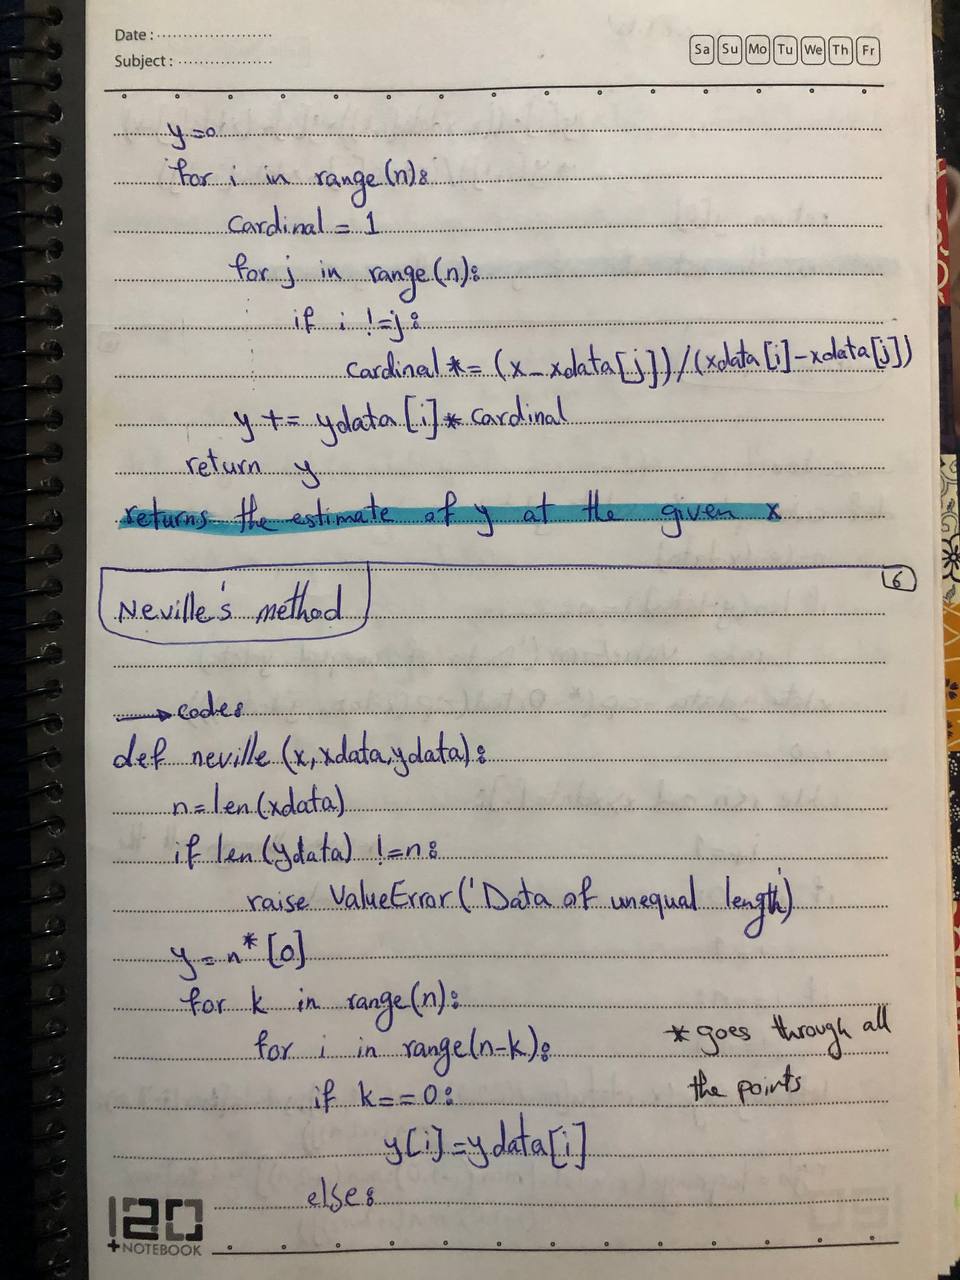 Date :
Subject :
Sa Su Mo Tu We Th Fr
y=0
for i in range(n):
cardinal = 1
for j in range(n):
if i !=j:
cardinal *= (x - xdata[j])/(xdata[i]-xdata[j])
y += ydata[i]* cardinal
return y
returns the estimate of y at the given x
6
Neville's method
→ code:
def neville (x,xdata,ydata):
n=len(xdata)
if len(ydata) !=n:
raise ValueError('Data of unequal length')
y=n*[0]
for k in range(n):
for i in range(n-k):
* goes through all
the points
if k==0:
y[i]=ydata[i]
else:
120
+NOTEBOOK